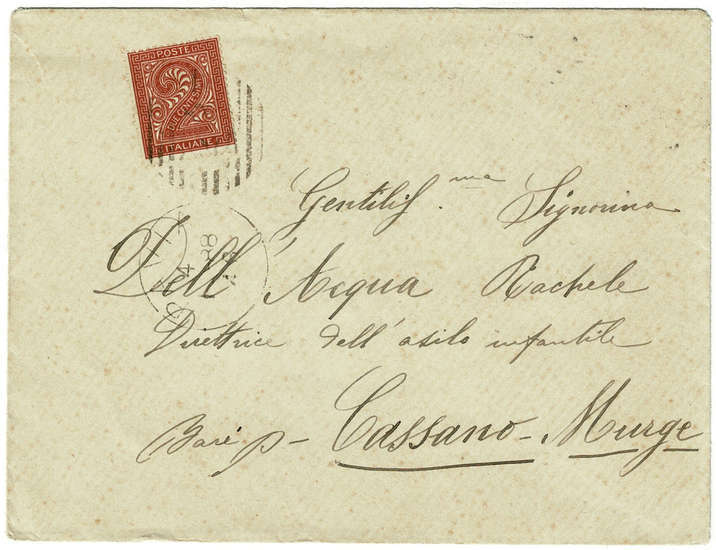 POSTE
2
DUE CENTESIMI
ITALIANE
Gentiliſ.ma Signorina
Dell' Acqua Rachele
Direttrice dell' asilo infantile
Bari p - Cassano - Murge